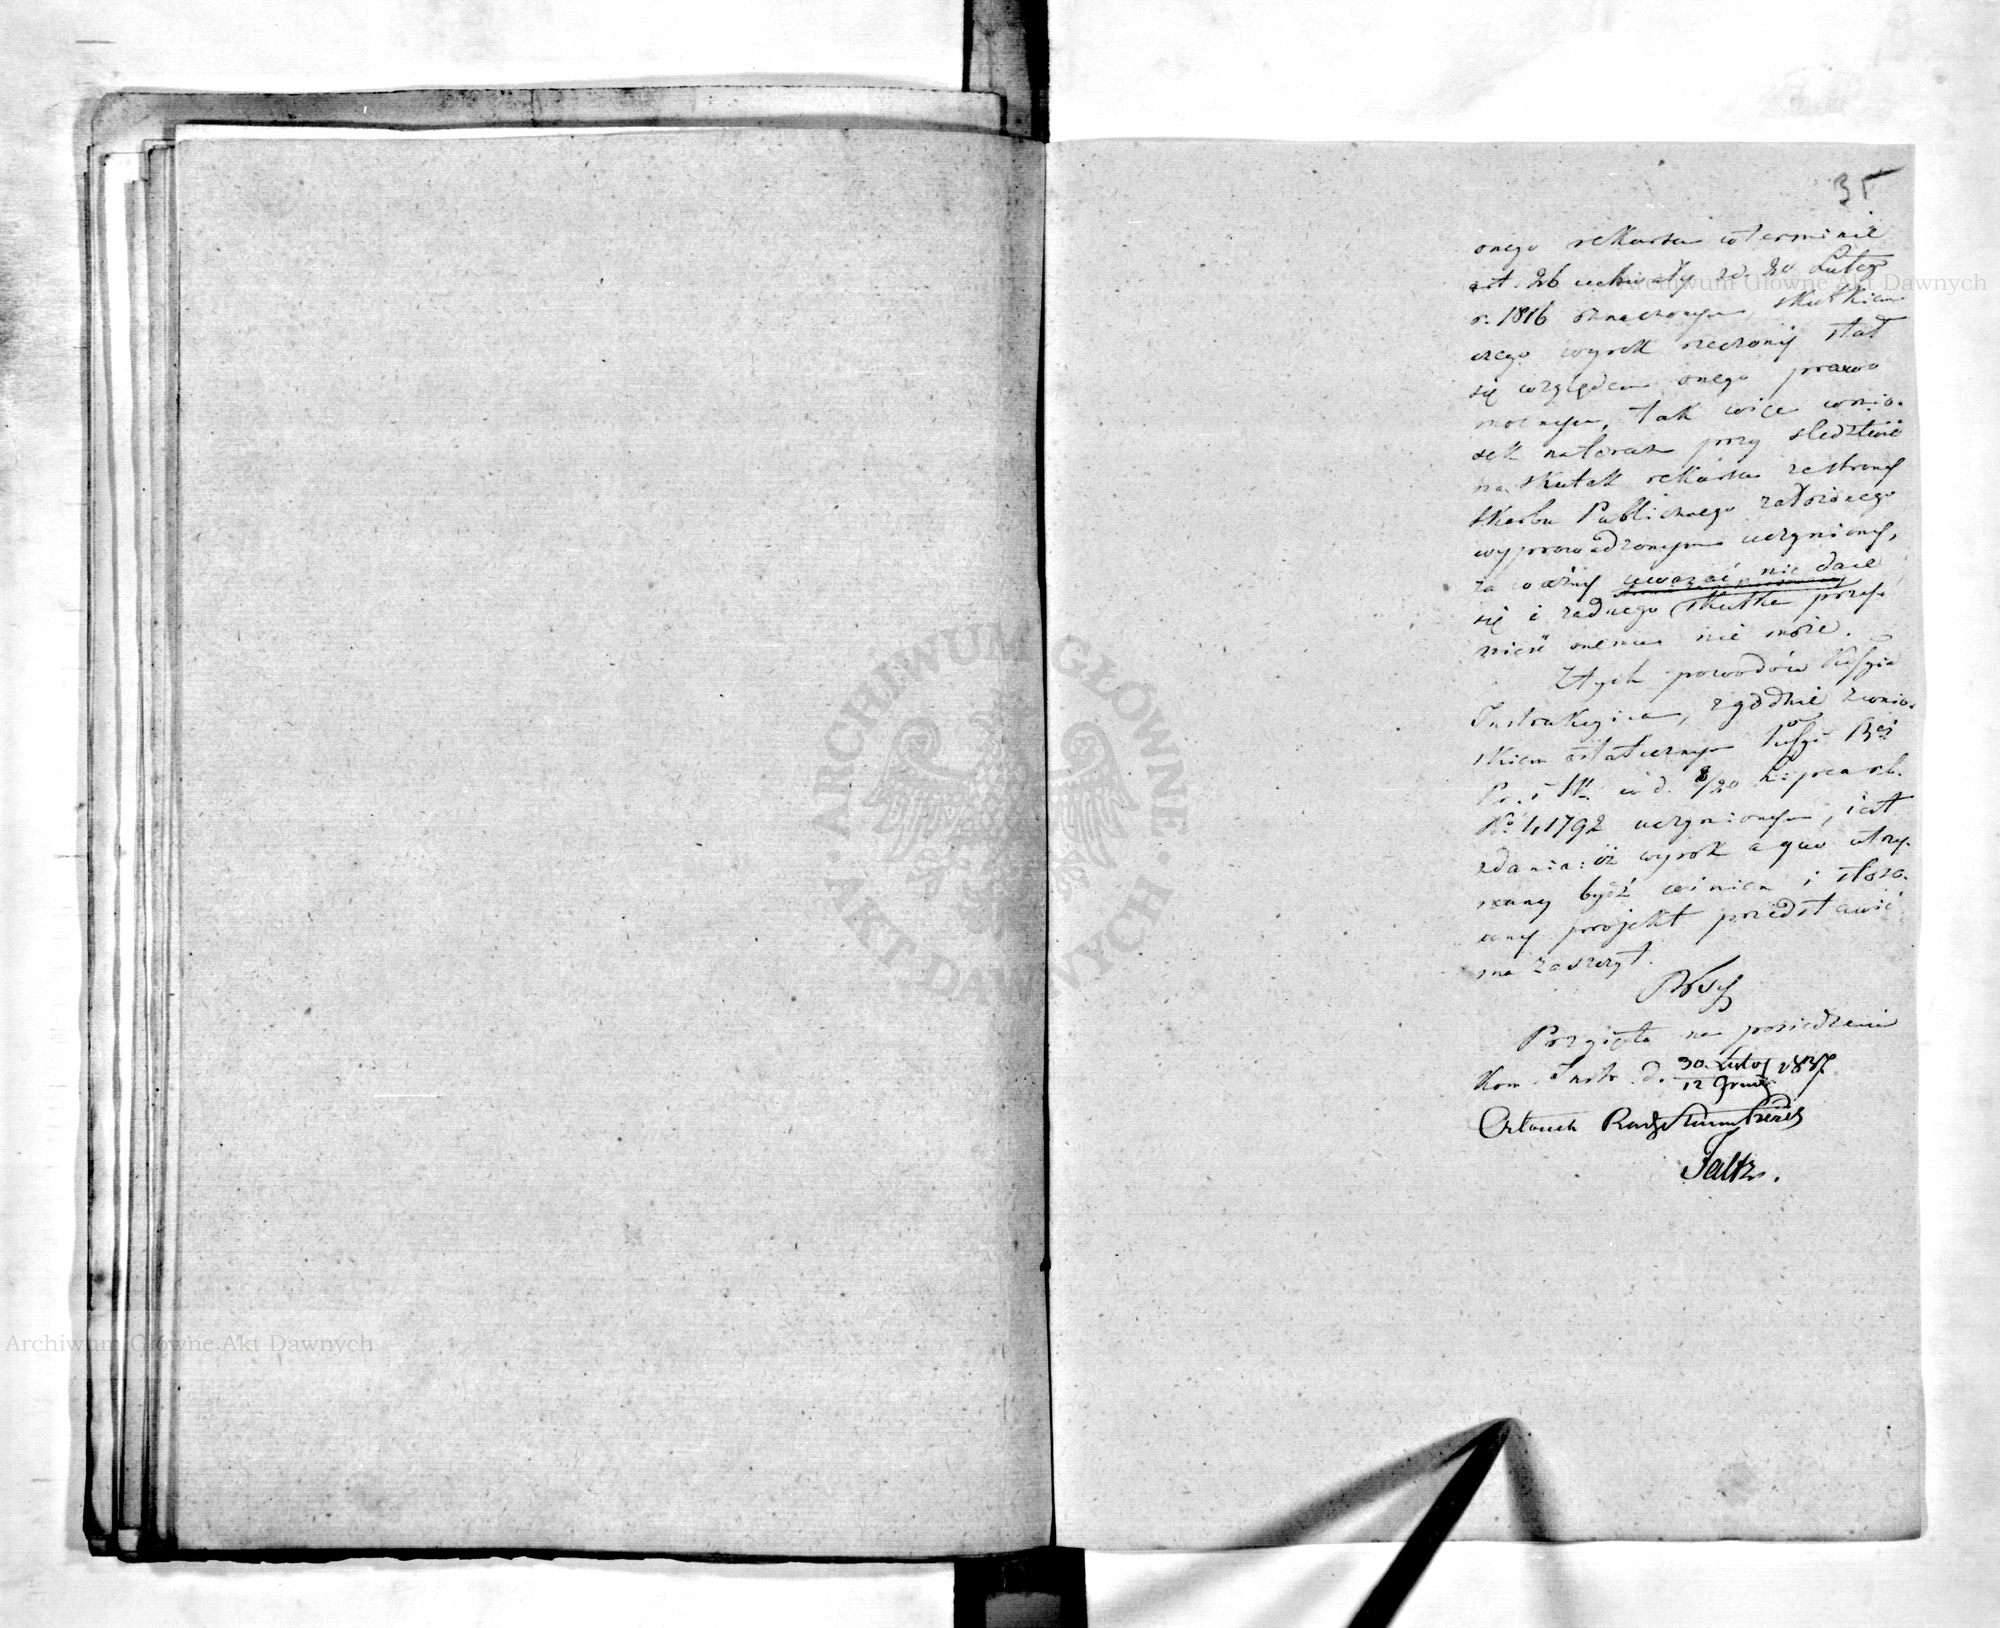 35
onego rekursu w terminie
art. 26 uchwały z d. 20 Lutego
r. 1816 oznaczonym, skutkiem
czego wyrok rzeczony stał
się względem onego prawo
mocnym, tak więc wnio-
sek nateraz przy śledztwie
na skutek rekursu ze strony
Skarbu Publicznego założonego
wyprowadzonym uczyniony,
za ważny uważać nie daie
się i żadnego skutku przy-
nieść onemu nie może.
Z tych powodów
Instrukcyina, zgodnie z wnio-
skiem ostatecznym
Pr. i Sk. w d. 8/20 Lipca r. b.
No 1,1792 uczynionym, iest
zdania: iż wyrok a quo utrzy-
many bydź winien i stoso-
wny projekt przedstawić
ma zaszczyt.
Przyięta na posiedzeniu
Kom. Instr. d. 30 Lutego 1837.
12
Członek Radzca Stanu
Archiwum Główne Akt Dawnych
ARCHIWUM GŁÓWNE · AKT DAWNYCH ·
Archiwum Główne Akt Dawnych